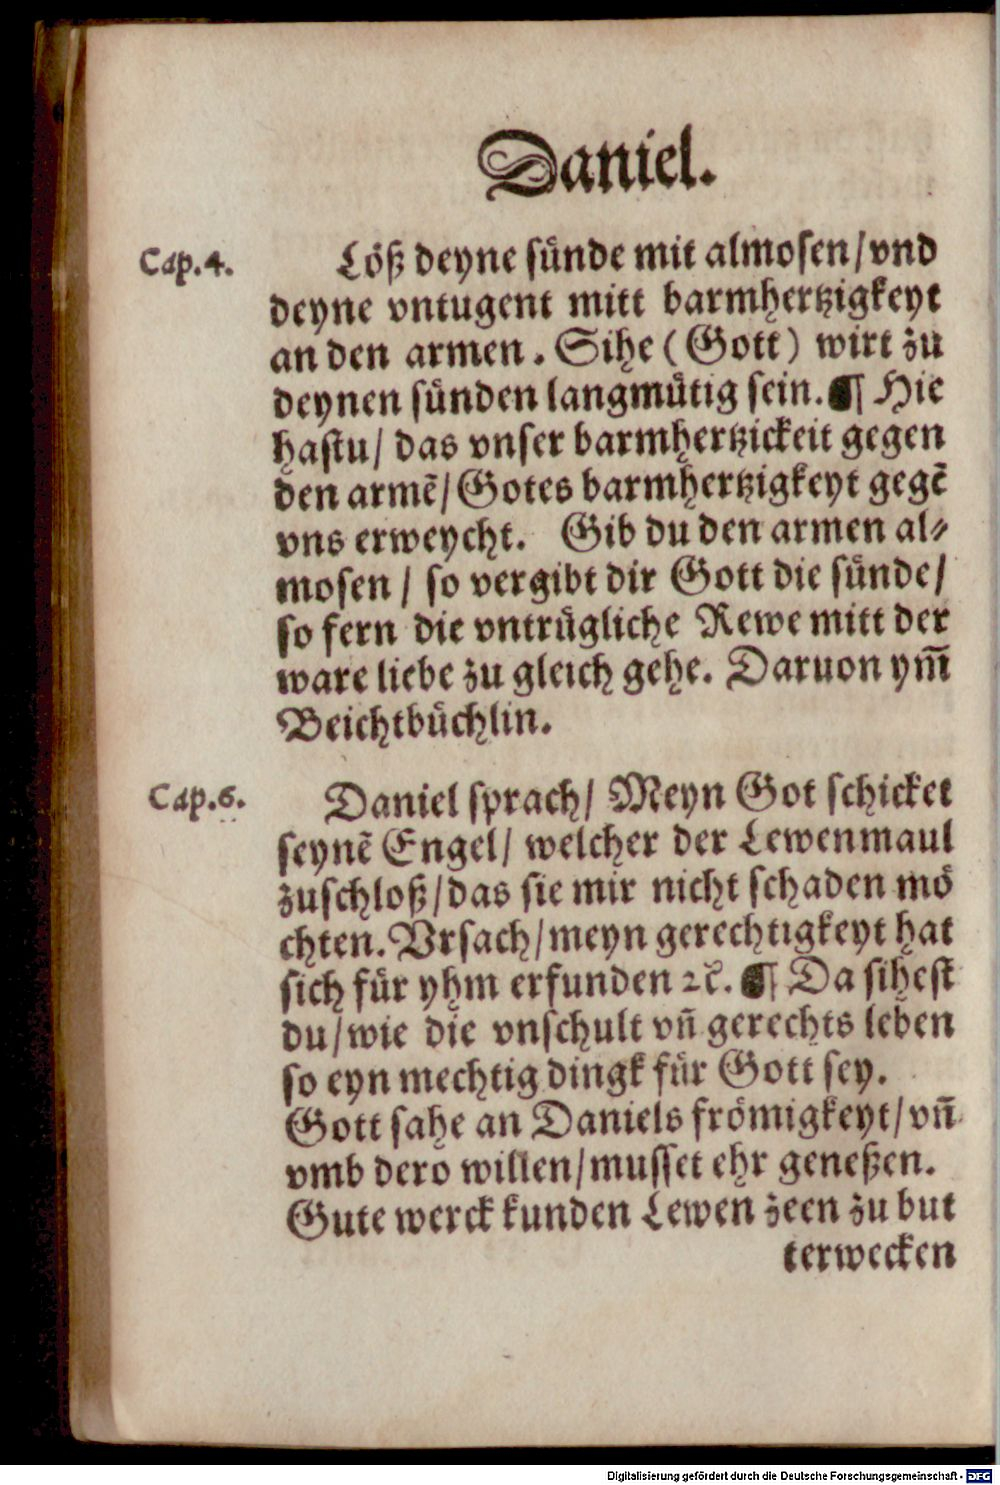 Daniel.
Cap.4. Löß deyne sünde mit almosen/vnd
deyne vntugent mitt barmhertzigkeyt
an den armen. Sihe (Gott) wirt zu
deynen sünden langmütig sein.¶ Hie
hastu/ das vnser barmhertzickeit gegen
den armē/Gotes barmhertzigkeyt gegē
vns erweycht. Gib du den armen al⸗
mosen/ so vergibt dir Gott die sünde/
so fern die vntrügliche Rewe mitt der
ware liebe zu gleich gehe. Daruon ym̄
Beichtbüchlin.
Cap.6. Daniel sprach/ Meyn Got schicket
seynē Engel/ welcher der Lewenmaul
zuschloß/das sie mir nicht schaden mö
chten. Vrsach/meyn gerechtigkeyt hat
sich für yhm erfunden ꝛc̄.¶ Da sihest
du/wie die vnschult vn̄ gerechts leben
so eyn mechtig dingk für Gott sey.
Gott sahe an Daniels frömigkeyt/vn̄
vmb dero willen/musset ehr geneßen.
Gute werck kunden Lewen zeen zu but
terwecken
Digitalisierung gefördert durch die Deutsche Forschungsgemeinschaft - DFG